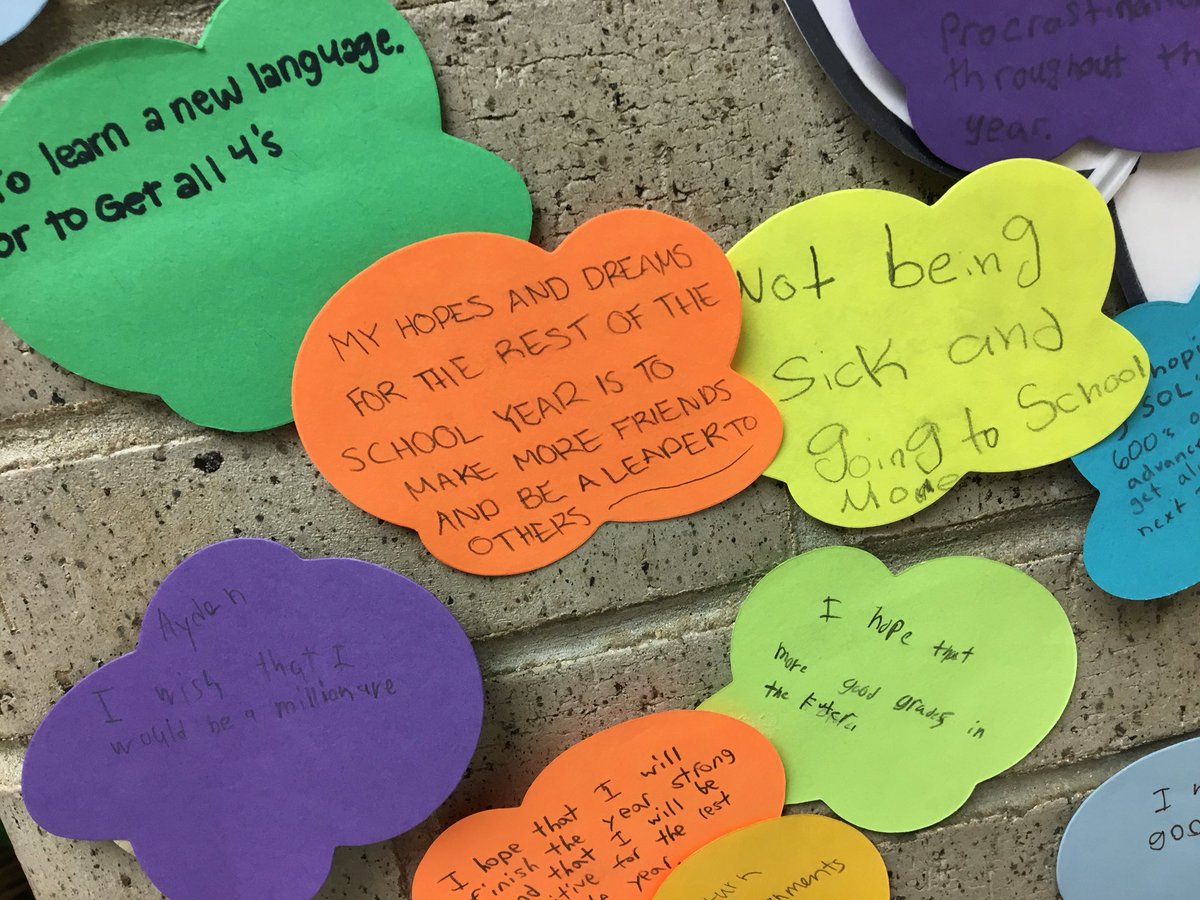 To learn a new language.
or to Get all 4's
Procrastination
throughout the
year.
MY HOPES AND DREAMS
FOR THE REST OF THE
SCHOOL YEAR IS TO
MAKE MORE FRIENDS
AND BE A LEADER TO
OTHERS
Not being
Sick and
going to School
More
SOL'
600's
advance
get all
next
Aydan
I wish that I
would be a millionare
I hope that
more good grades in
the
I hope that I will
finish the year strong
and that I will be
for the rest
year.
I
goo